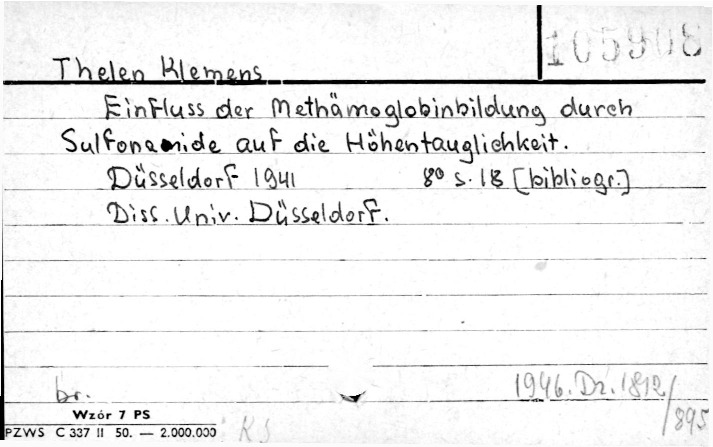 105908
Thelen Klemens
Einfluss der Methämoglobinbildung durch
Sulfonamide auf die Höhentauglichkeit.
Düsseldorf 1941 8º s. 18 [bibliogr.]
Diss. Univ. Düsseldorf.
br.
1946. Dz. 1812/895
Wzór 7 PS
PZWS C 337 II 50. — 2.000.000
KS